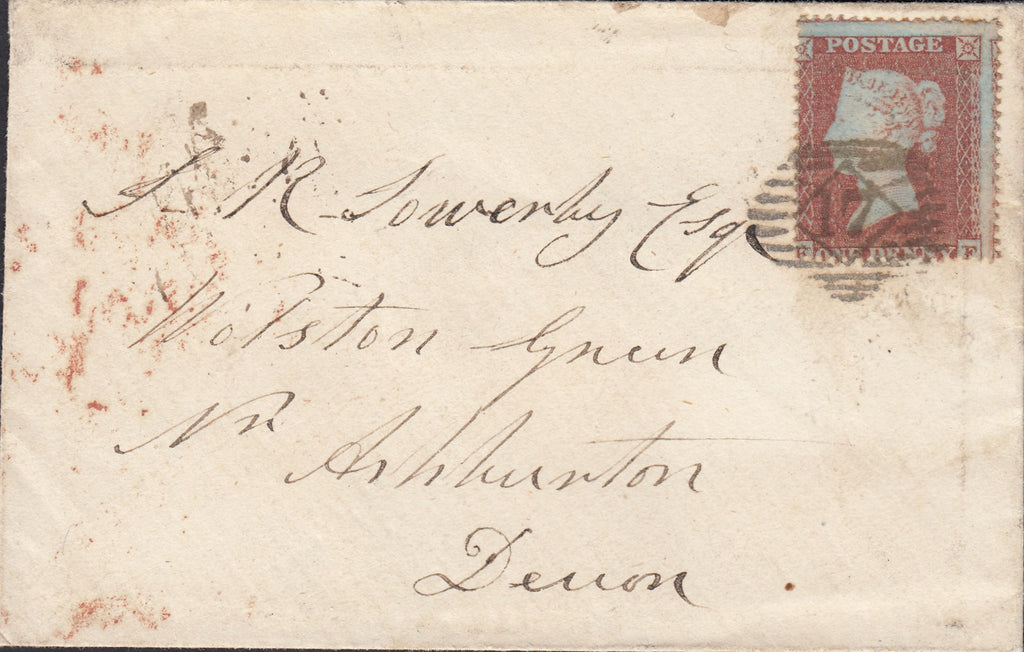 POSTAGE
17
ONE PENNY
J. R. Sowerby Esq
Wolston Green
Nr
Ashburton
Devon